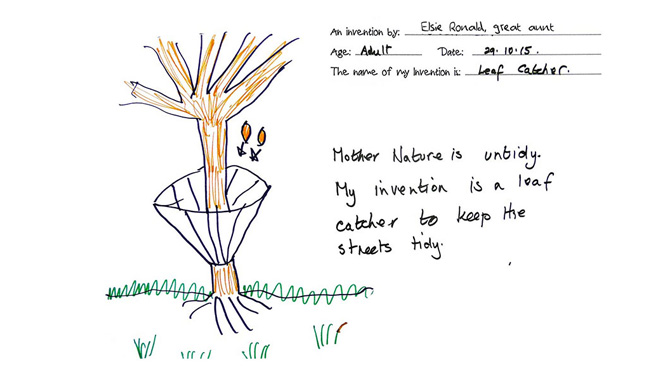 An invention by: Elsie Ronald, great aunt
Age: Adult Date: 29.10.15.
The name of my invention is: Leaf Catcher.
Mother Nature is untidy.
My invention is a leaf
catcher to keep the
streets tidy.